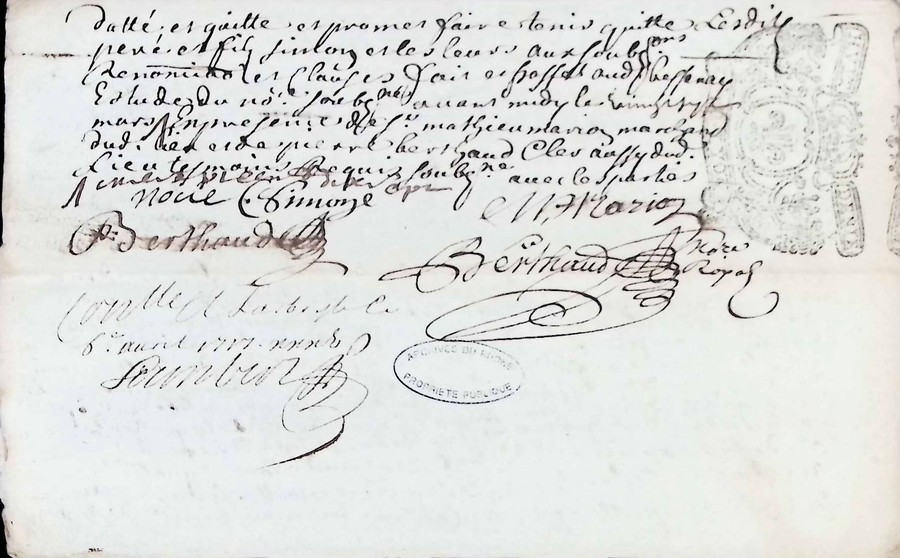 datté, et quitte et promet faire tenir quitte Lesdits
pere et fils Simon et les leurs aux soub.ons
Renonciaōns et Clauses fait et passé aud. bessenay
Estude du no.re soubz.né avant midy le vingt sept
mars En presences de s.r mathieu marion marchand
dud. lieu et de pierre berthaud Clerc aussy dud.
Lieu tesmoins Requis soubz.nés avec les parties
noue C Simone
M. Marion
P. Berthaud
Berthaud No.re Royal
Con.lle A Larbresle Ce
6.e avril 1717
ARCHIVES DU RHÔNE
PROPRIÉTÉ PUBLIQUE